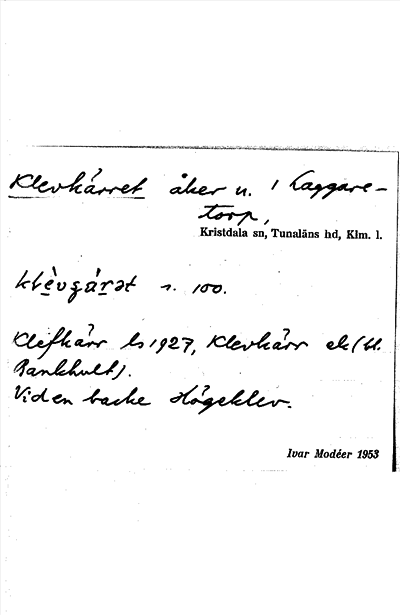 Klevkärret åker n. 1 Laggare-
torp,
Kristdala sn, Tunaläns hd, Klm. l.
s. 100.
Klefkärr ls 1927, Klevkärr ek (bl.
Bankhult).
Vid en backe Högeklev.
Ivar Modéer 1953